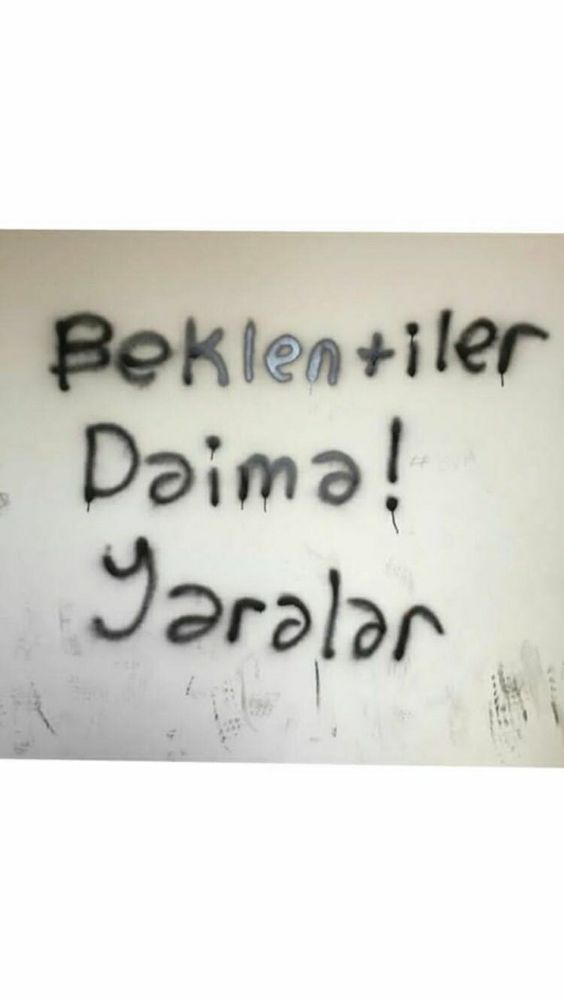 Beklentiler
Daima!
Yaralar